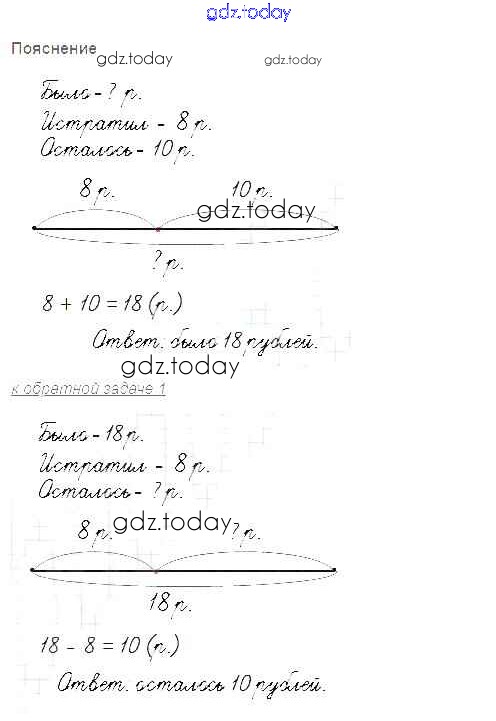 gdz.today
Пояснение
gdz.today gdz.today
Было - ? р.
Истратил - 8 р.
Осталось - 10 р.
8 р. 10 р.
gdz.today
? р.
8 + 10 = 18 (р.)
Ответ: было 18 рублей.
gdz.today
к обратной задаче 1
Было - 18 р.
Истратил - 8 р.
Осталось - ? р.
8 р. gdz.today ? р.
18 р.
18 - 8 = 10 (р.)
Ответ: осталось 10 рублей.